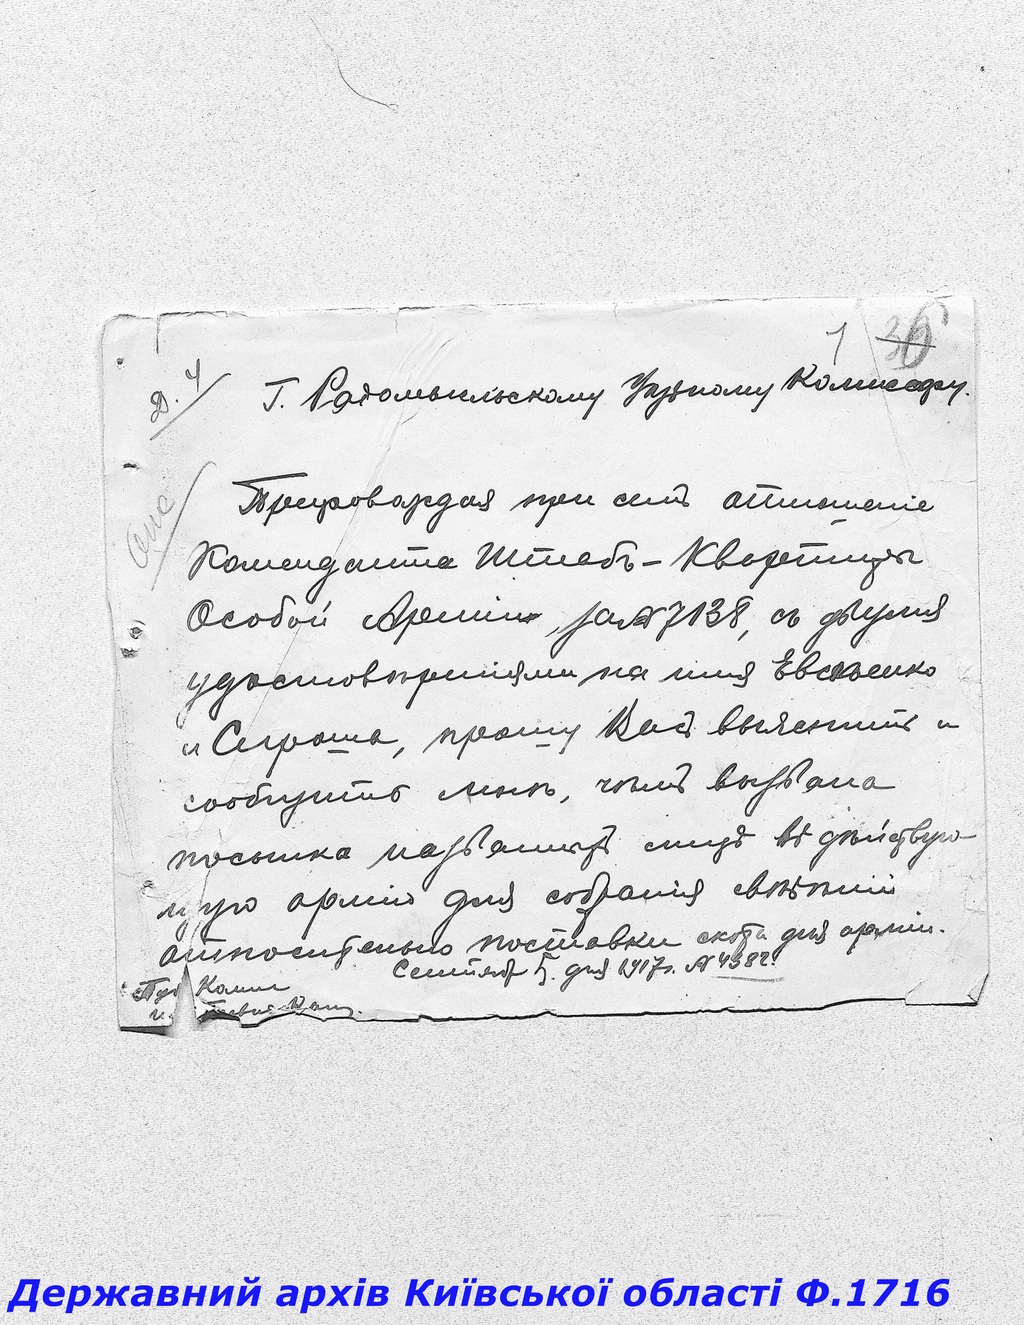 1 36
Д. 4
Г. Радомысльскому Уѣздному Комисару.
Препровождая при семъ отношеніе
Коменданта Штабъ-Квартиры
Особой Арміи за № 7138, съ двумя
удостовѣреніями на имя Евсѣенко
и Сироша, прошу Васъ выяснить и
сообщить мнѣ, чѣмъ вызвана
посылка названныхъ лицъ въ дѣйствую-
щую армію для собранія свѣдѣній
относительно поставки скота для арміи.
Сентября 5 дня 1917 г. № 4382.
Держaвний архів Київської області Ф.1716